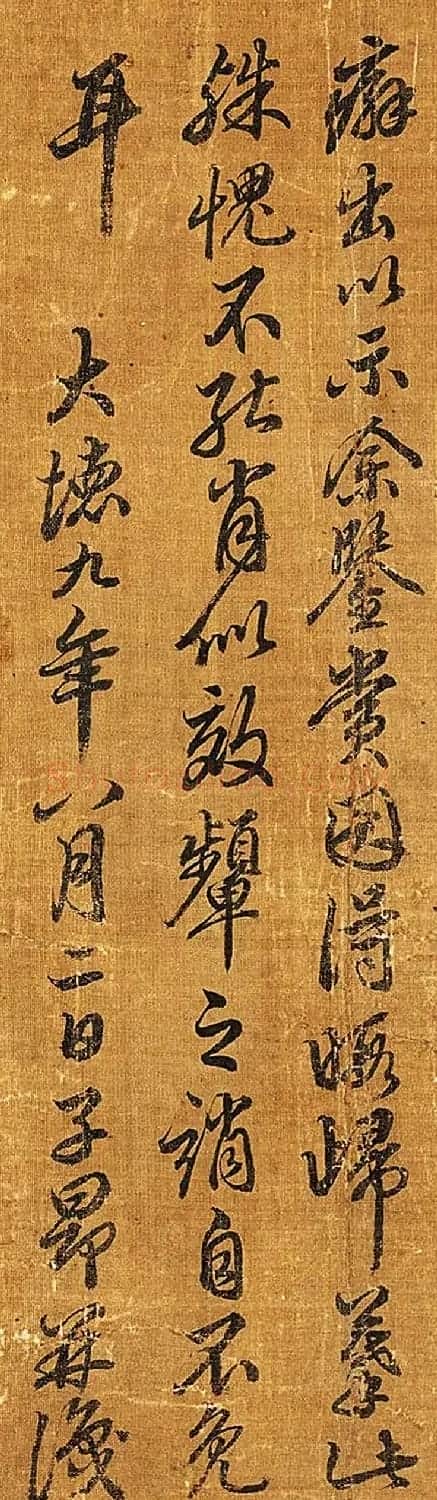 癖出以示余鑒賞因得暇歸摹此
殊愧不能肖似效顰之誚自不免
耳 大德九年八月二日子昂並識